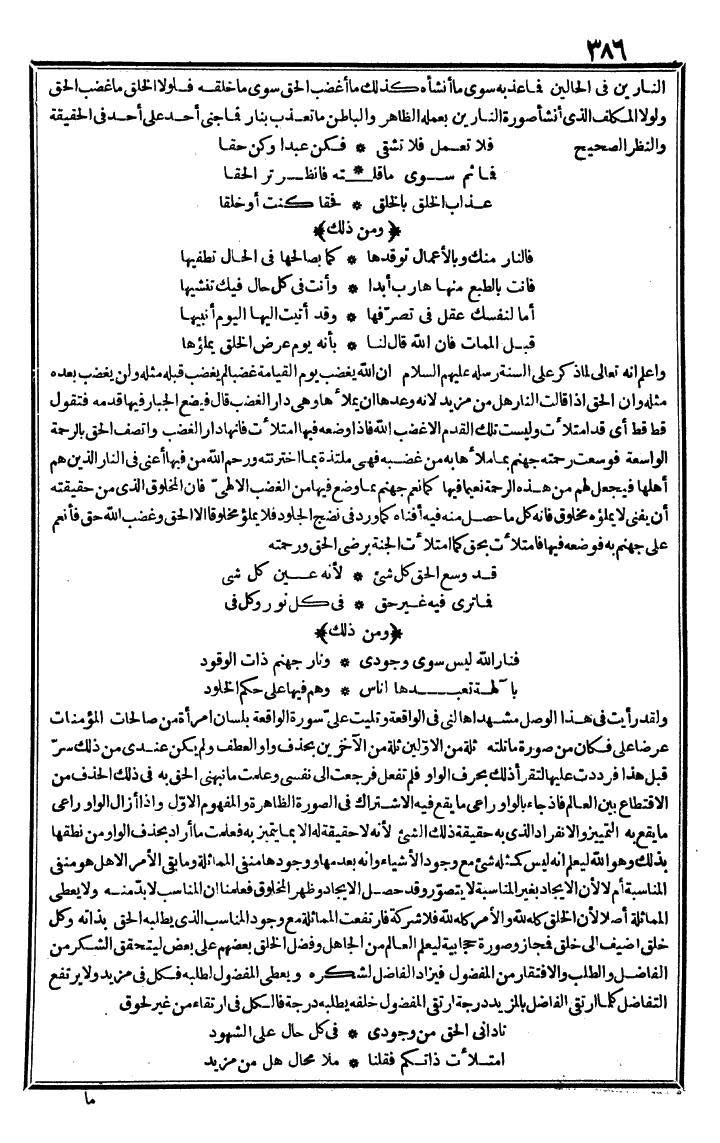 ٣٨٦
النارين فى الحالين فماعذبه سوى ماأنشأه كذلك ماأغضب الحق سوى ماخلقه فلولا الخلق ماغضب الحق
ولولا المكلف الذى أنشأ صورة النارين بعمله الظاهر والباطن ماتعذب بنار فماجنى أحد على أحد فى الحقيقة
والنظر الصحيح فلا تعمل فلا تشقى * فكن عبدا وكن حقا
فما ثم سوى ماقلته * فانظر تر الحقا
عذاب الخلق بالخلق * فحقا كنت أو خلقا
﴿ومن ذلك﴾
فالنار منك وبالأعمال توقدها * كما بصالحها فى الحال تطفيها
فانت بالطبع منها هارب أبدا * وأنت فى كل حال فيك تنشيها
أما لنفسك عقل فى تصرّفها * وقد أتيت اليها اليوم أنبيها
قبل الممات فان الله قال لنا * بأنه يوم عرض الخلق يملؤها
واعلم انه تعالى لماذكر على السنة رسله عليهم السلام ان الله يغضب يوم القيامة غضبا لم يغضب قبله مثله ولن يغضب بعده
مثله وان الحق اذا قالت النار هل من مزيد لانه وعدها ان يملأها وهى دار الغضب قال فيضع الجبار فيها قدمه فتقول
قط قط أى قد امتلأت وليست تلك القدم الاغضب الله فاذا وضعه فيها امتلأت فانها دار الغضب واتصف الحق بالرحمة
الواسعة فوسعت رحمته جهنم بماملأها به من غضبه فهى ملتذة بما اختزنته ورحم الله من فيها أعنى فى النار الذين هم
أهلها فيجعل لهم من هذه الرحمة نعيما فيها كمانعم جهنم بماوضع فيها من الغضب الالهىّ فان المخلوق الذى من حقيقته
أن يفنى لا يملؤه مخلوق فانه كل ما حصل منه فيه أفناه كماورد فى نضج الجلود فلا يملؤ مخلوقا الا الحق وغضب الله حق فأنعم
على جهنم به فوضعه فيها فامتلأت بحق كما امتلأت الجنة برضى الحق ورحمته
قد وسع الحق كل شئ * لأنه عين كل شى
فماترى فيه غير حق * فى كل نور وكل فى
﴿ومن ذلك﴾
فنار الله ليس سوى وجودى * ونار جهنم ذات الوقود
بآلهة تعبدها اناس * وهم فيها على حكم الخلود
ولقد رأيت فى هذا الوصل مشهدا هالنى فى الواقعة وتليت علىّ سورة الواقعة بلسان امرأة من صالحات المؤمنات
عرضا على فكان من صورة ماتلته ثلة من الاوّلين ثلة من الآخرين بحذف واو العطف ولم يكن عندى من ذلك سرّ
قبل هذا فرددت عليها لتقرأ ذلك بحرف الواو فلم تفعل فرجعت الى نفسى وعلمت مانبهنى الحق به فى ذلك الحذف من
الاقتطاع بين العالم فاذجاء بالواو راعى مايقع فيه الاشتراك فى الصورة الظاهرة والمفهوم الاوّل واذا أزال الواو راعى
مايقع به التمييز والانفراد الذى به حقيقة ذلك الشئ لأنه لا حقيقة له الا بمايتميز به فعلمت ماأراد بحذف الواو من نطقها
بذلك وهو الله ليعلم انه ليس كمثله شئ مع وجود الأشياء وانه بعدمها ووجودها منفى المماثلة ومابقى الأمر الاهل هو منفى
المناسبة أم لا لأن الايجاد بغير المناسبة لا يتصوّر وقد حصل الايجاد وظهر المخلوق فعلمنا ان المناسب لابدّ منه ولا يعطى
المماثلة أصلا لأن الخلق كله لله والأمر كله لله فلا شركة فارتفعت المماثلة مع وجود المناسب الذى يطلبه الحق بذاته وكل
خلق اضيف الى خلق فمجاز وصورة حجابية ليعلم العالم من الجاهل وفضل الخلق بعضهم على بعض ليتحقق الشكر من
الفاضل والطلب والافتقار من المفضول فيزاد الفاضل لشكره ويعطى المفضول لطلبه فكل فى مزيد ولا يرتفع
التفاضل كلما ارتقى الفاضل بالمزيد درجة ارتقى المفضول خلفه يطلبه درجة فالكل فى ارتقاء من غير لحوق
نادانى الحق من وجودى * فى كل حال على الشهود
امتلأت ذاتكم فقلنا * ملا محال هل من مزيد
ما